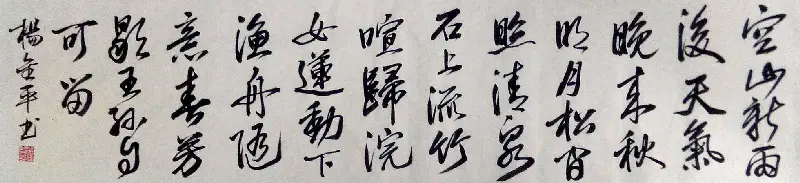 空山新雨
後天氣
晚来秋
明月松间
照清泉
石上流竹
喧歸浣
女蓮動下
渔舟随
意春芳
歇王孙自
可留
楊金平书